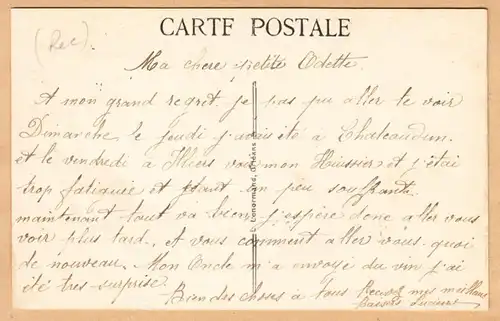 (Rec)
CARTE POSTALE
Ma chere petite Odette.
A mon grand regret je pas pu aller te voir
Dimanche le jeudi j'avais été à Chateaudun.
et le vendredi à Illiers voir mon Huissier et j'étai
trop fatiguée et étant un peu souffrante.
maintenant tout va bien j'espère donc aller vous
voir plus tard. A vous comment aller vous quoi
de nouveau. Mon Oncle m'a envoyé du vin j'ai
été très surprise.
Bien des choses à tous Recevez mes meilleurs
Baisers Lucienne
Lenormand, Orléans